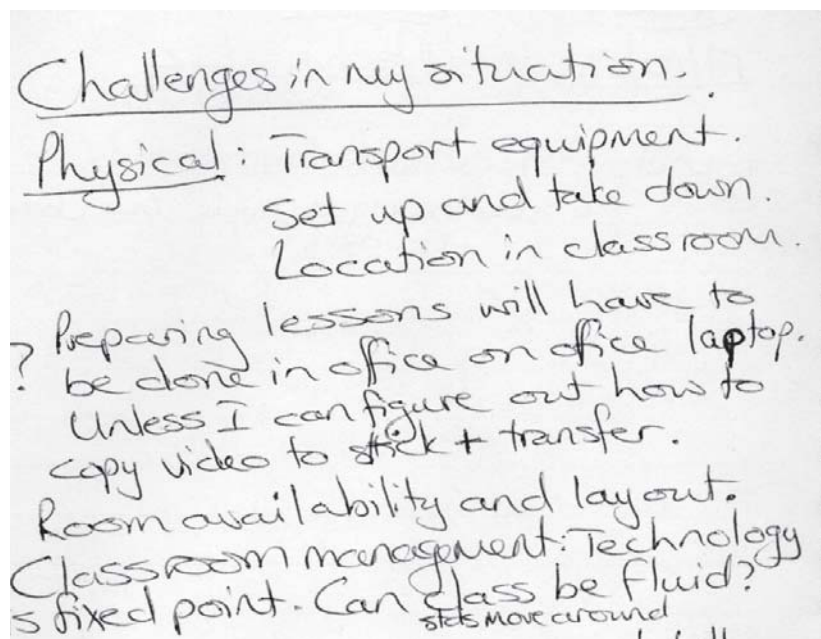 Challenges in my situation.
Physical: Transport equipment.
Set up and take down.
Location in classroom.
Preparing lessons will have to
? be done in office on office laptop.
Unless I can figure out how to
copy video to stick + transfer.
Room availability and layout.
Classroom management: Technology
s fixed point. Can class be fluid?
stds move around